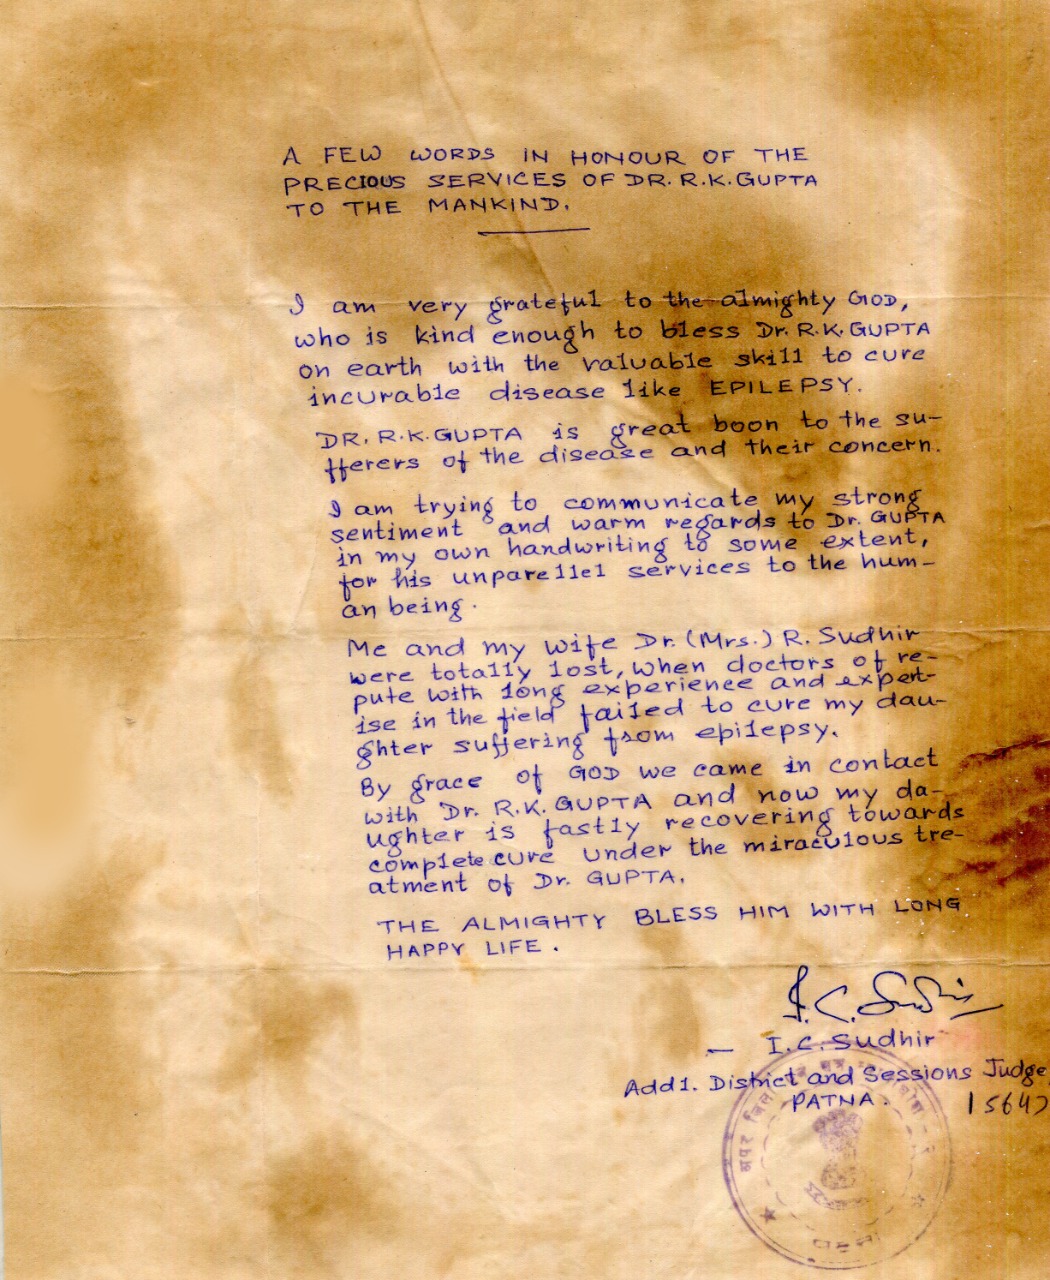 A FEW WORDS IN HONOUR OF THE
PRECIOUS SERVICES OF DR. R.K. GUPTA
TO THE MANKIND.
I am very grateful to the almighty GOD,
who is kind enough to bless Dr. R.K. GUPTA
on earth with the valuable skill to cure
incurable disease like EPILEPSY.
DR. R.K. GUPTA is great boon to the su-
fferers of the disease and their concern.
I am trying to communicate my strong
sentiment and warm regards to Dr. GUPTA
in my own handwriting to some extent,
for his unparellel services to the hum-
an being.
Me and my wife Dr. (Mrs.) R. Sudhir
were totally lost, when doctors of re-
pute with long experience and expert-
ise in the field failed to cure my dau-
ghter suffering from epilepsy.
By grace of GOD we came in contact
with Dr. R.K. GUPTA and now my da-
ughter is fastly recovering towards
complete cure under the miraculous tre-
atment of Dr. GUPTA.
THE ALMIGHTY BLESS HIM WITH LONG
HAPPY LIFE.
I.C. Sudhir
— I.C. Sudhir
Addl. District and Sessions Judge
PATNA.
अपर जिला
पटना